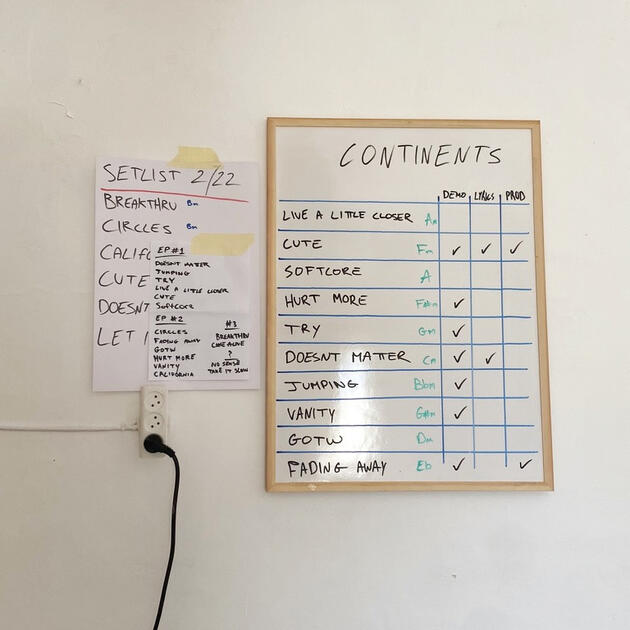 SETLIST 2/22
BREAKTHRU Bm
CIRCLES Bm
CALIFO
CUTE
DOESNT
LET
EP #1
DOESNT MATTER
JUMPING
TRY
LIVE A LITTLE CLOSER
CUTE
SOFTCORE
EP #2
CIRCLES
FADING AWAY
GOTW
HURT MORE
VANITY
CALIFORNIA
#3
BREAKTHRU
COME ALONE
?
NO SENSE
TAKE IT SLOW
CONTINENTS
DEMO LYRICS PROD
LIVE A LITTLE CLOSER Am
CUTE Fm ✓ ✓ ✓
SOFTCORE A
HURT MORE F#m ✓
TRY Gm ✓
DOESNT MATTER Cm ✓ ✓
JUMPING Bbm ✓
VANITY G#m ✓
GOTW Dm
FADING AWAY Eb ✓ ✓